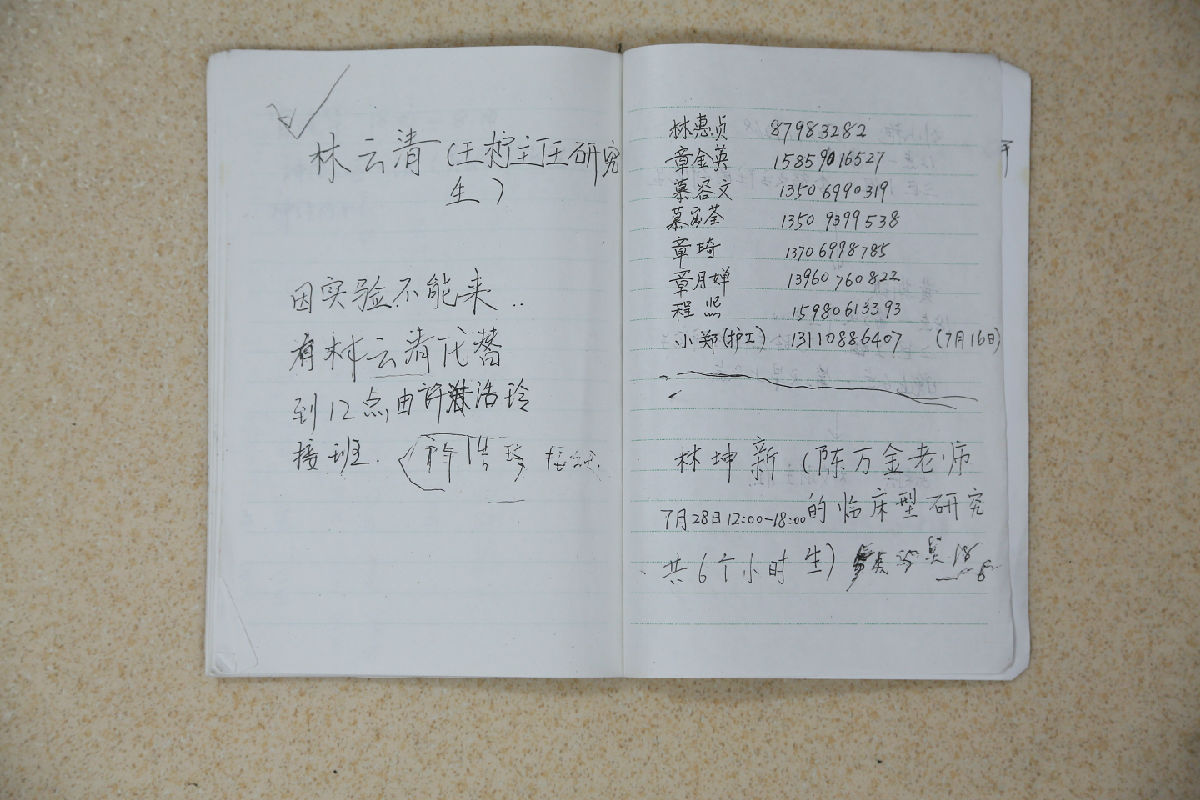 林云清(王柠主任研究
生)
因实验不能来..
有林云清代替
到12点,由许浩玲
接班.
许浩玲
林惠贞 87983282
章金英 15859016527
慕容文 13506990319
慕容荃 13509399538
章琦 13706998785
章月婵 13960760822
程 13980613393
小郑(护工) 13110886407 (7月16日)
林坤新(陈万金老师
7月28日12:00-18:00的临床型研究
共6个小时 生)